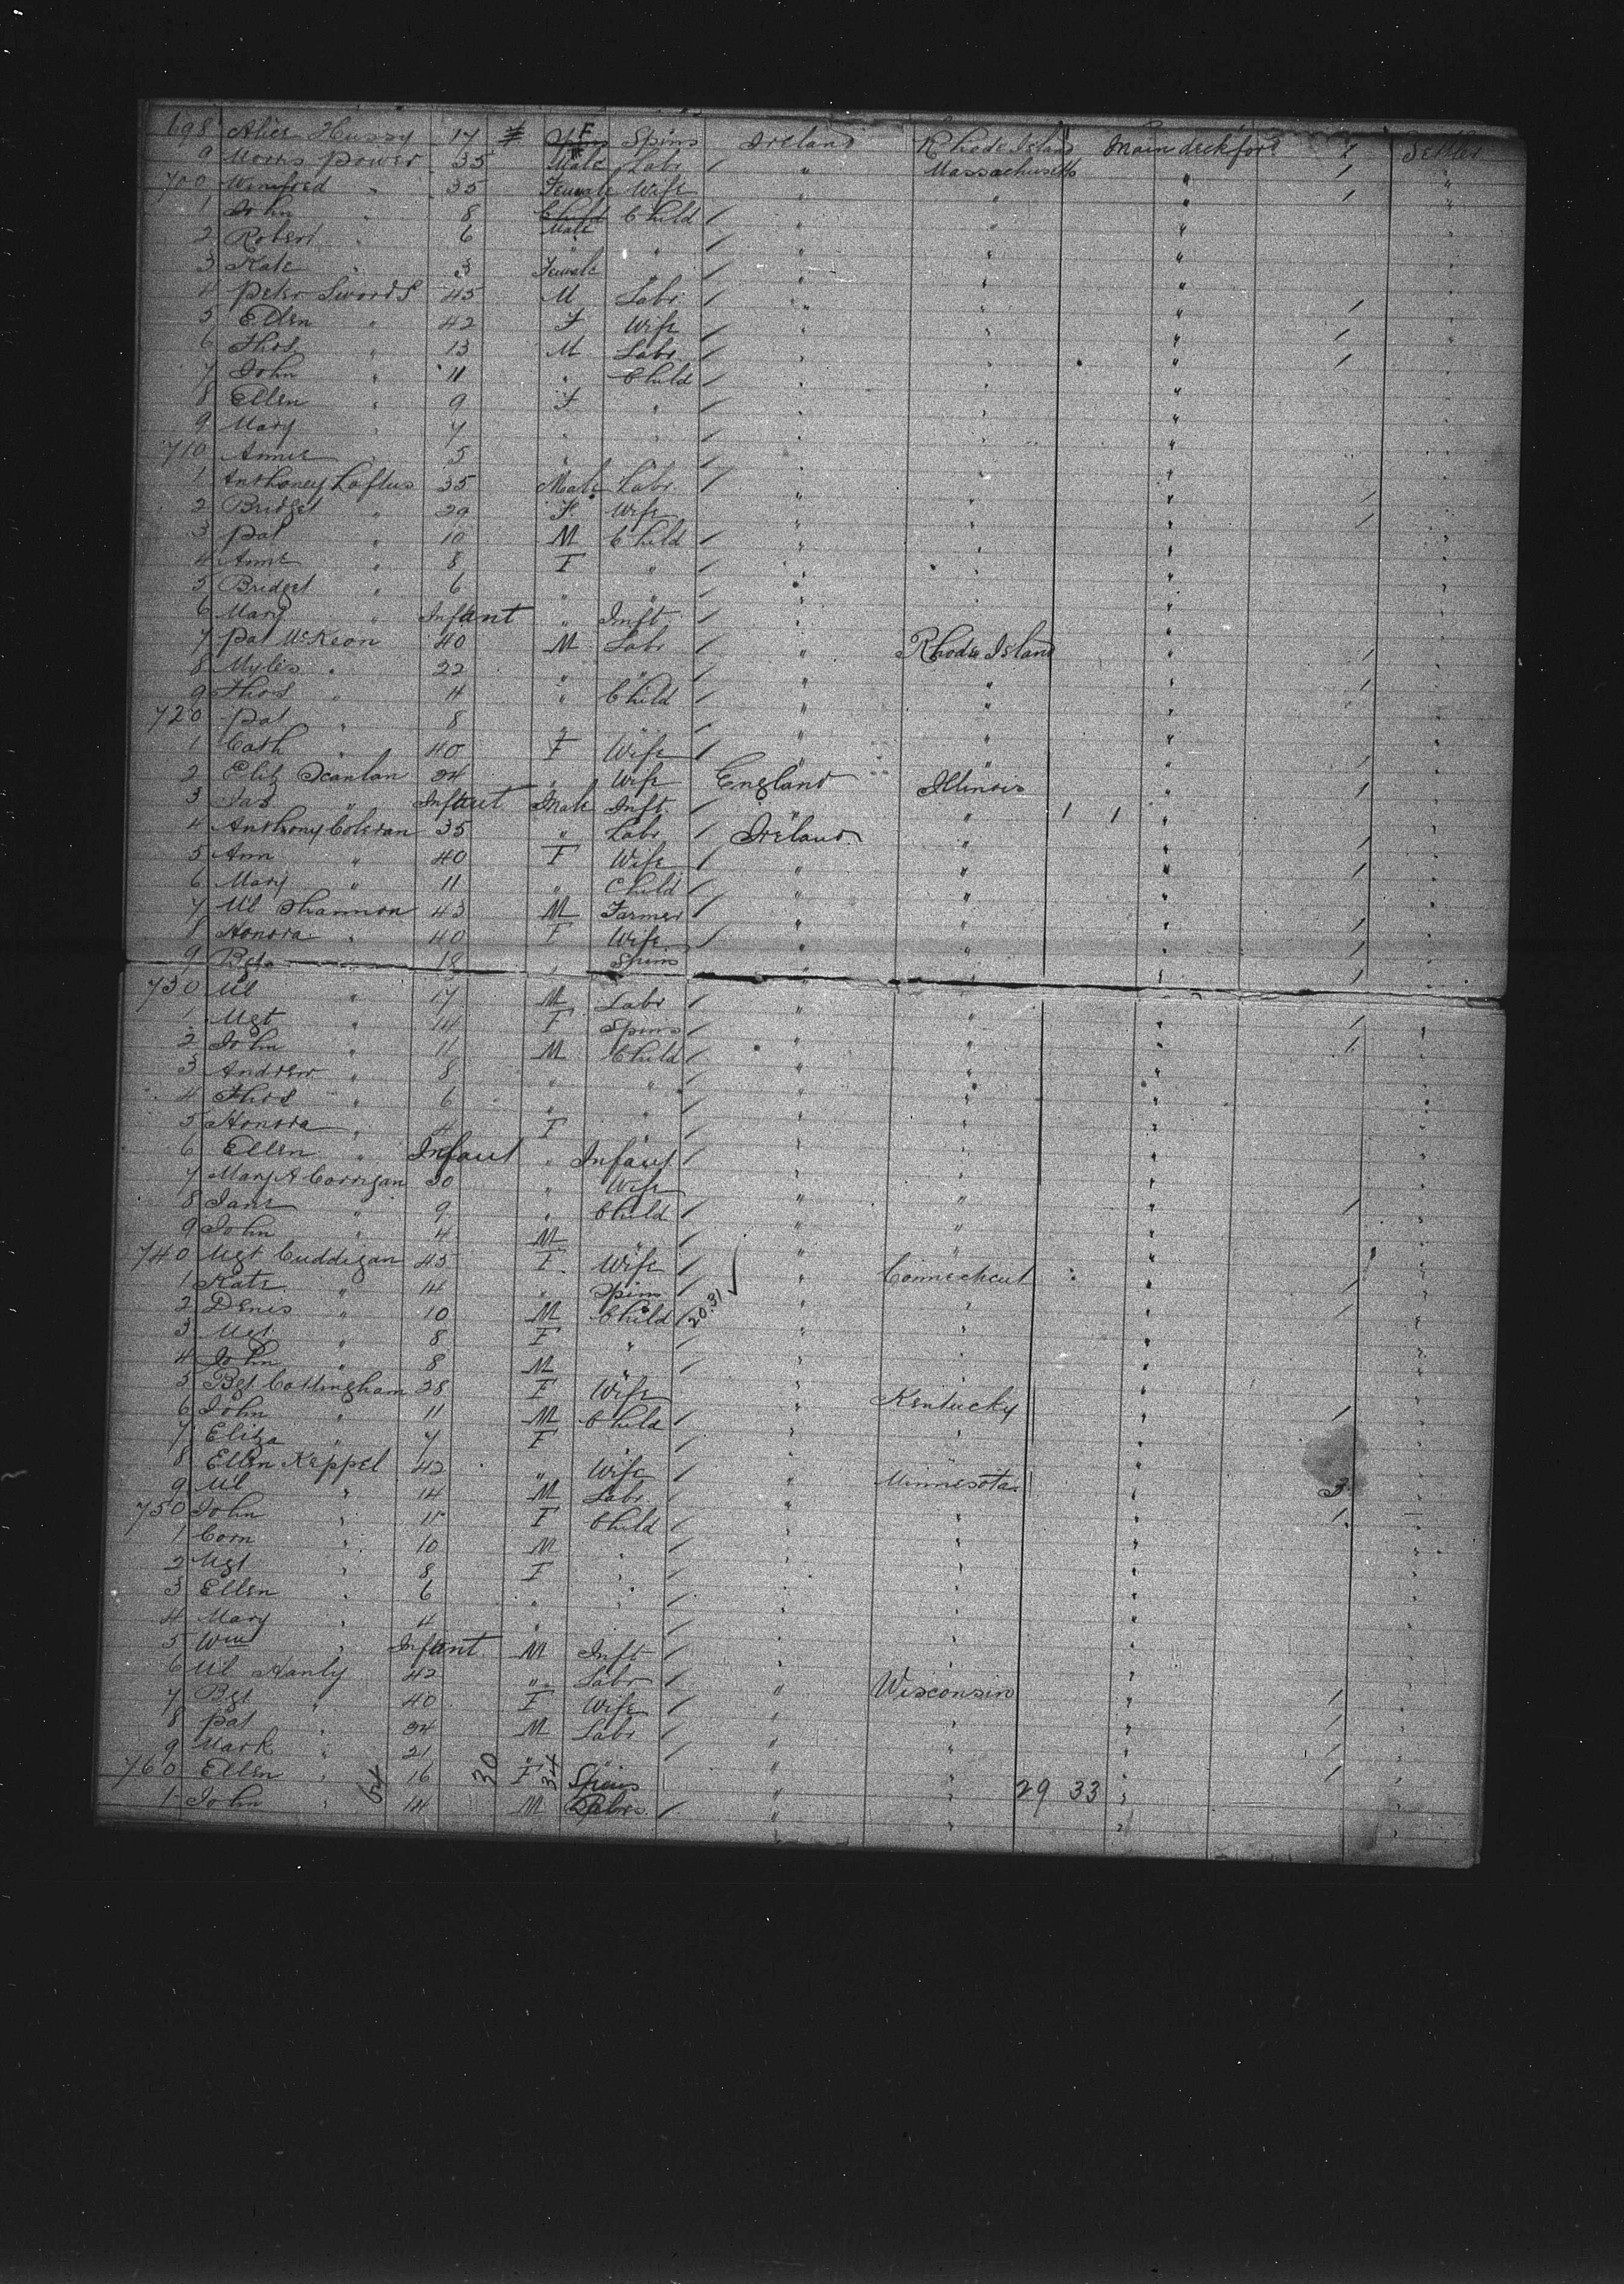 698 Alice Hussy 17 F Spins Ireland Rhode Island Main deck for'd 1 Settler
9 Morris Power 35 Male Labr / " Massachusetts " 1 "
700 Winifred " 35 Female Wife " " " 1 "
1 John " 8 Child Male Child / " " "
2 Robert " 6 " " / " " "
3 Kate " 3 Female " / " " "
4 Peter Swords 45 M Labr / " " " 1 "
5 Ellen " 42 F Wife / " " " 1 "
6 Thos " 13 M Labr / " " " 1 "
7 John " 11 " Child / " " "
8 Ellen " 9 F " / " " "
9 Mary " 7 " " / " " "
710 Annie " 5 " " / " " "
1 Anthoney Loftus 35 Male Labr / " " " 1 "
2 Bridget " 29 F. Wife " " " 1 "
3 Pat " 10 M Child / " " " "
4 Anne " 8 F " / " " " "
5 Bridget " 6 " " / " " " "
6 Mary " Infant " Inft / " " " "
7 Pat McKeon 40 M Labr / " Rhode Island " 1 "
8 Myles " 22 " " / " " " 1 "
9 Thos " 11 " Child / " " " "
720 Pat " 8 " " / " " " "
1 Cath " 40 F Wife / " " " 1 "
2 Eliz Scanlan 24 " Wife England Illinois " 1 "
3 Jas " Infant Male Inft / " " 1 1 " "
4 Anthony Coleran 35 " Labr / Ireland " " 1 "
5 Ann " 40 F Wife / " " " 1 "
6 Mary " 11 " Child / " " " "
7 Ml Shannon 43 M Farmer / " " " 1 "
8 Honora " 40 F Wife / " " " 1 "
9 " 18 " Spins " " " 1 "
730 Ml " 17 M Labr / " " " 1 "
1 Mgt " 14 F Spins / " " " 1 "
2 John " 11 M Child / " " " "
3 Andrew " 8 " " / " " " "
4 Thos " 6 " " / " " " "
5 Honora " 4 F " / " " " "
6 Ellen " Infant " Infant / " " " "
7 Mary A Corrigan 30 " Wife " " " 1 "
8 Jane " 9 " Child / " " " "
9 John " 4 M " / " " " "
740 Mgt Cuddigan 45 F. Wife / " Connecticut " 1 "
1 Kate " 14 " Spins / " " " 1 "
2 Denis " 10 M Child / 20 31 " " " "
3 Mgt " 8 F " / " " " "
4 John " 8 M " / " " " "
5 Bgt Cottingham 28 F Wife " Kentucky " 1 "
6 John " 11 M Child / " " " "
7 Eliza " 7 F " / " " " "
8 Ellen Keppel 42 " Wife / " Minnesota " 3 "
9 Ml " 14 M Labr / " " " 1 "
750 John " 11 F Child / " " " "
1 Corn " 10 M " / " " " "
2 Mgt " 8 F " / " " " "
3 Ellen " 6 " " / " " " "
4 Mary " 4 " " / " " " "
5 Wm " Infant M Inft / " " " "
6 Ml Hanly 42 " Labr / " Wisconsin " 1 "
7 Bgt " 40 F Wife / " " " 1 "
8 Pat " 24 M Labr / " " " 1 "
9 Mark " 21 " " / " " " 1 "
760 Ellen " 64 16 30 F 34 Spins " " 29 33 " "
1 John " 14 M Labr / " " " "